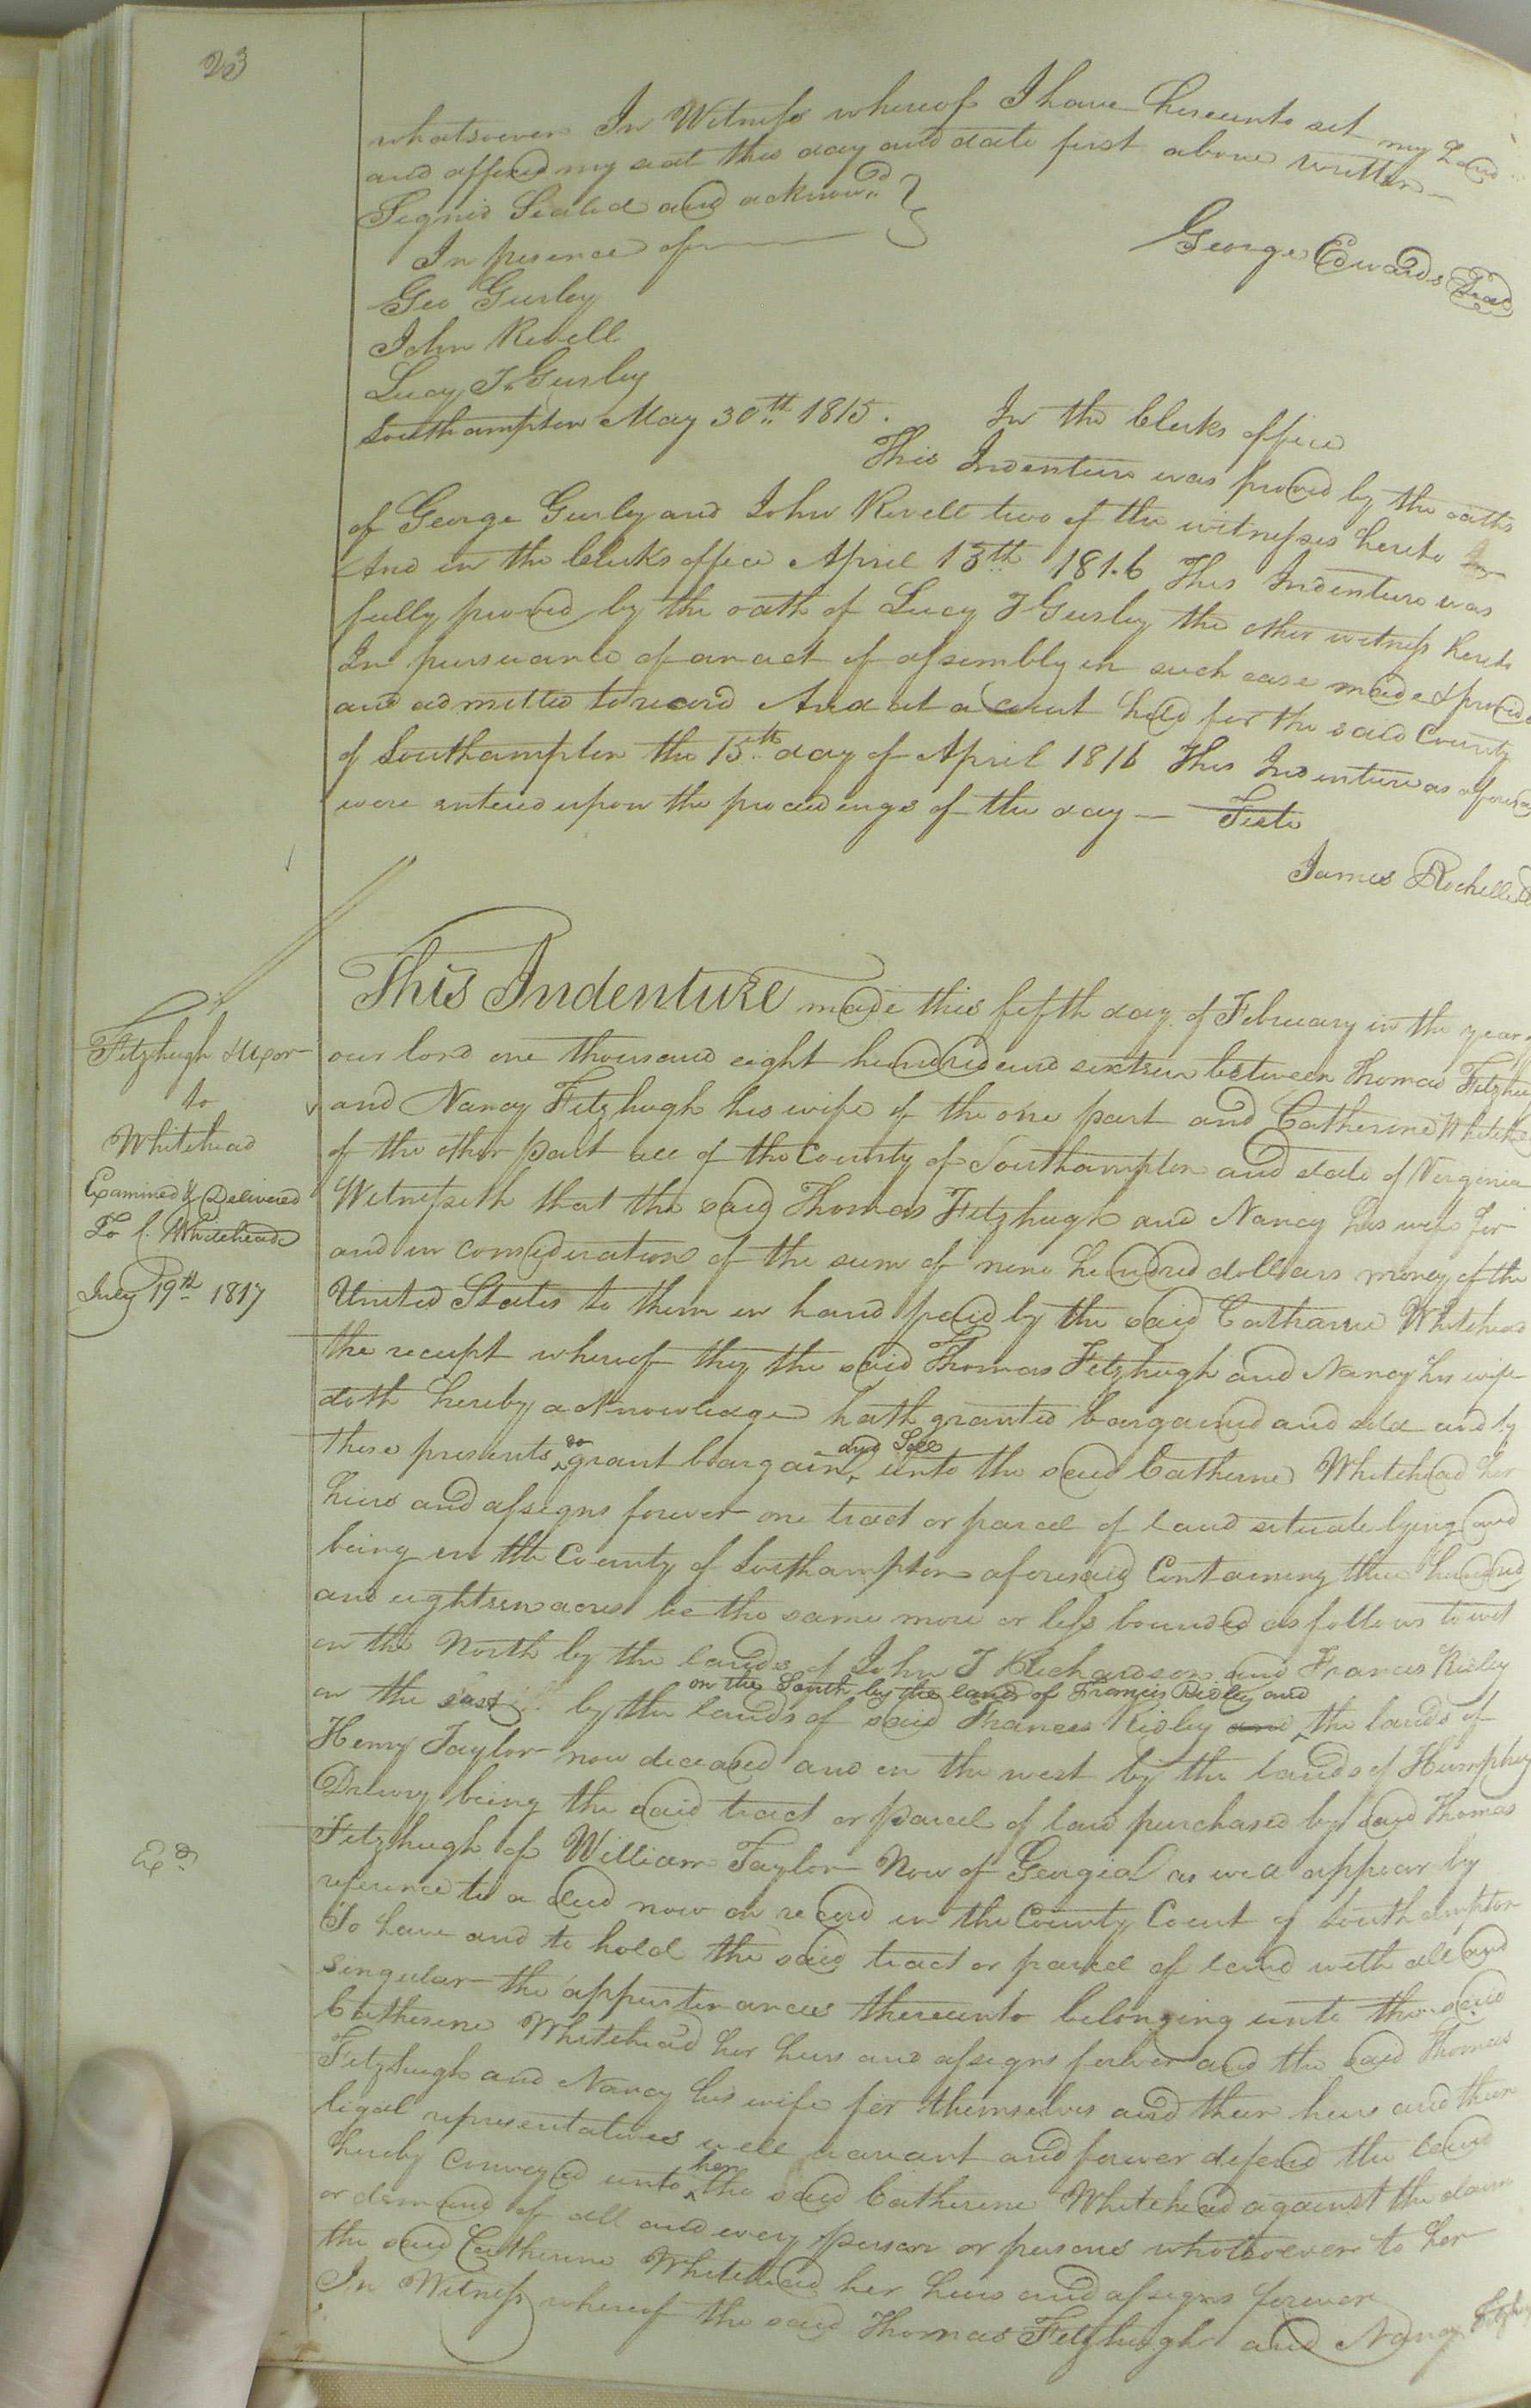 23
whatsoever In Witness whereof I have hereunto set my hand
and affixed my seal the day and date first above written
Signed Sealed and acknow.d
In presence of
George Edwards Seal
Geo Gurley
John Revell
Lucy T Gurley
Southampton May 30th 1815. In the Clerks office
This Indenture was proved by the oaths
of George Gurley and John Revell two of the witnesses hereto
And in the Clerks office April 13th 1816 This Indenture was
fully proved by the oath of Lucy T Gurley the other witness hereto
In pursuance of an act of assembly in such case made & provide
and admitted to record And at a Court held for the said County
of Southampton the 15th day of April 1816 This Indenture as aforesa
were entered upon the proceedings of the day — Teste
James Rochelle
Fitzhugh & Uxor
to
Whitehead
Examined & Delivered
To C. Whitehead
July 19th 1817
This Indenture made this fifth day of February in the year of
our lord one thousand eight hundred and sixteen between Thomas Fitzhu
and Nancy Fitzhugh his wife of the one part and Catherine Whitehe
of the other part all of the County of Southampton and state of Virginia
Witnesseth that the said Thomas Fitzhugh and Nancy his wife for
and in consideration of the sum of nine hundred dollars money of the
United States to them in hand paid by the said Catharine Whitehead
the receipt whereof they the said Thomas Fitzhugh and Nancy his wife
doth hereby acknowledge hath granted bargained and sold and by
these presents do grant bargain and Sell unto the said Catherine Whitehead her
heirs and assigns forever one tract or parcel of land situate lying and
being in the County of Southampton aforesaid Containing three hundred
and eighteen acres be the same more or less bounded as follows to wit
on the North by the lands of John T Richardson and Frances Ridley
on the South by the lands of Francis Ridley and
on the east by the lands of said Frances Ridley and the lands of
Henry Taylor now deceased and on the west by the lands of Humphry
Drewry being the said tract or parcel of land purchased by said Thomas
Fitzhugh of William Taylor Now of Georgia as will appear by
reference to a deed now on record in the County Court of Southampton
Exd
To have and to hold the said tract or parcel of land with all and
singular the appurtenances thereunto belonging unto the said
Catherine Whitehead her heirs and assigns forever and the said Thomas
Fitzhugh and Nancy his wife for themselves and their heirs and their
legal representatives will warrant and forever defend the land
hereby conveyed unto her the said Catherine Whitehead against the claim
or demand of all and every person or persons whatsoever to her
the said Catherine Whitehead her heirs and assigns forever
In Witness whereof the said Thomas Fitzhugh and Nancy Fitzhugh